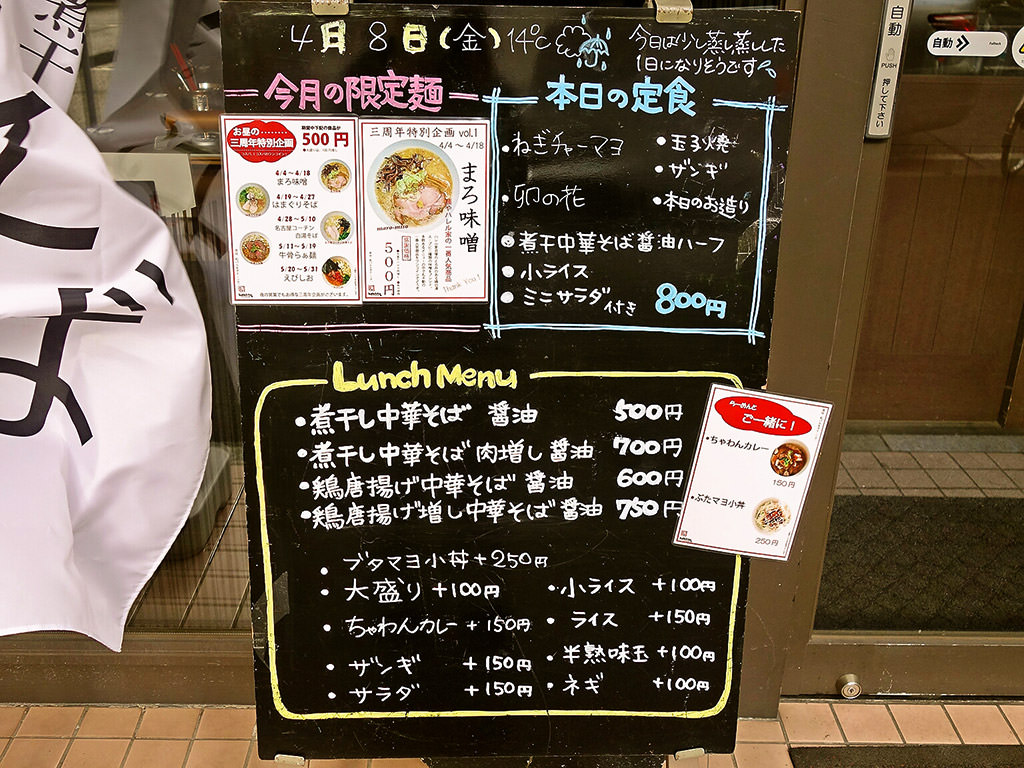 煮干
そば
4月8日(金) 14℃
今日は少し蒸し蒸しした
1日になりそうです
今月の限定麺
お昼の………
三周年特別企画
500円
4/4～4/18
まろ味噌
4/19～4/27
はまぐりそば
4/28～5/10
名古屋コーチン
白湯そば
5/11～5/19
牛骨らぁ麺
5/20～5/31
えびしお
三周年特別企画 vol.1
4/4～4/18
まろ味噌
maro-miso
500円
Thank You!
本日の定食
・ねぎチャーマヨ
・卯の花
・玉子焼
・ザンギ
・本日のお造り
・煮干中華そば醤油ハーフ
・小ライス
・ミニサラダ付き
800円
Lunch Menu
・煮干し中華そば 醤油 500円
・煮干し中華そば 肉増し 醤油 700円
・鶏唐揚げ中華そば 醤油 600円
・鶏唐揚げ増し中華そば 醤油 750円
・ブタマヨ小丼+250円
・大盛り+100円
・ちゃわんカレー+150円
・ザンギ +150円
・サラダ +150円
・小ライス +100円
・ライス +150円
・半熟味玉+100円
・ネギ +100円
らーめんと
ご一緒に!
・ちゃわんカレー
150円
・ぶたマヨ小丼
250円
自動
PUSH
押して下さい
自動